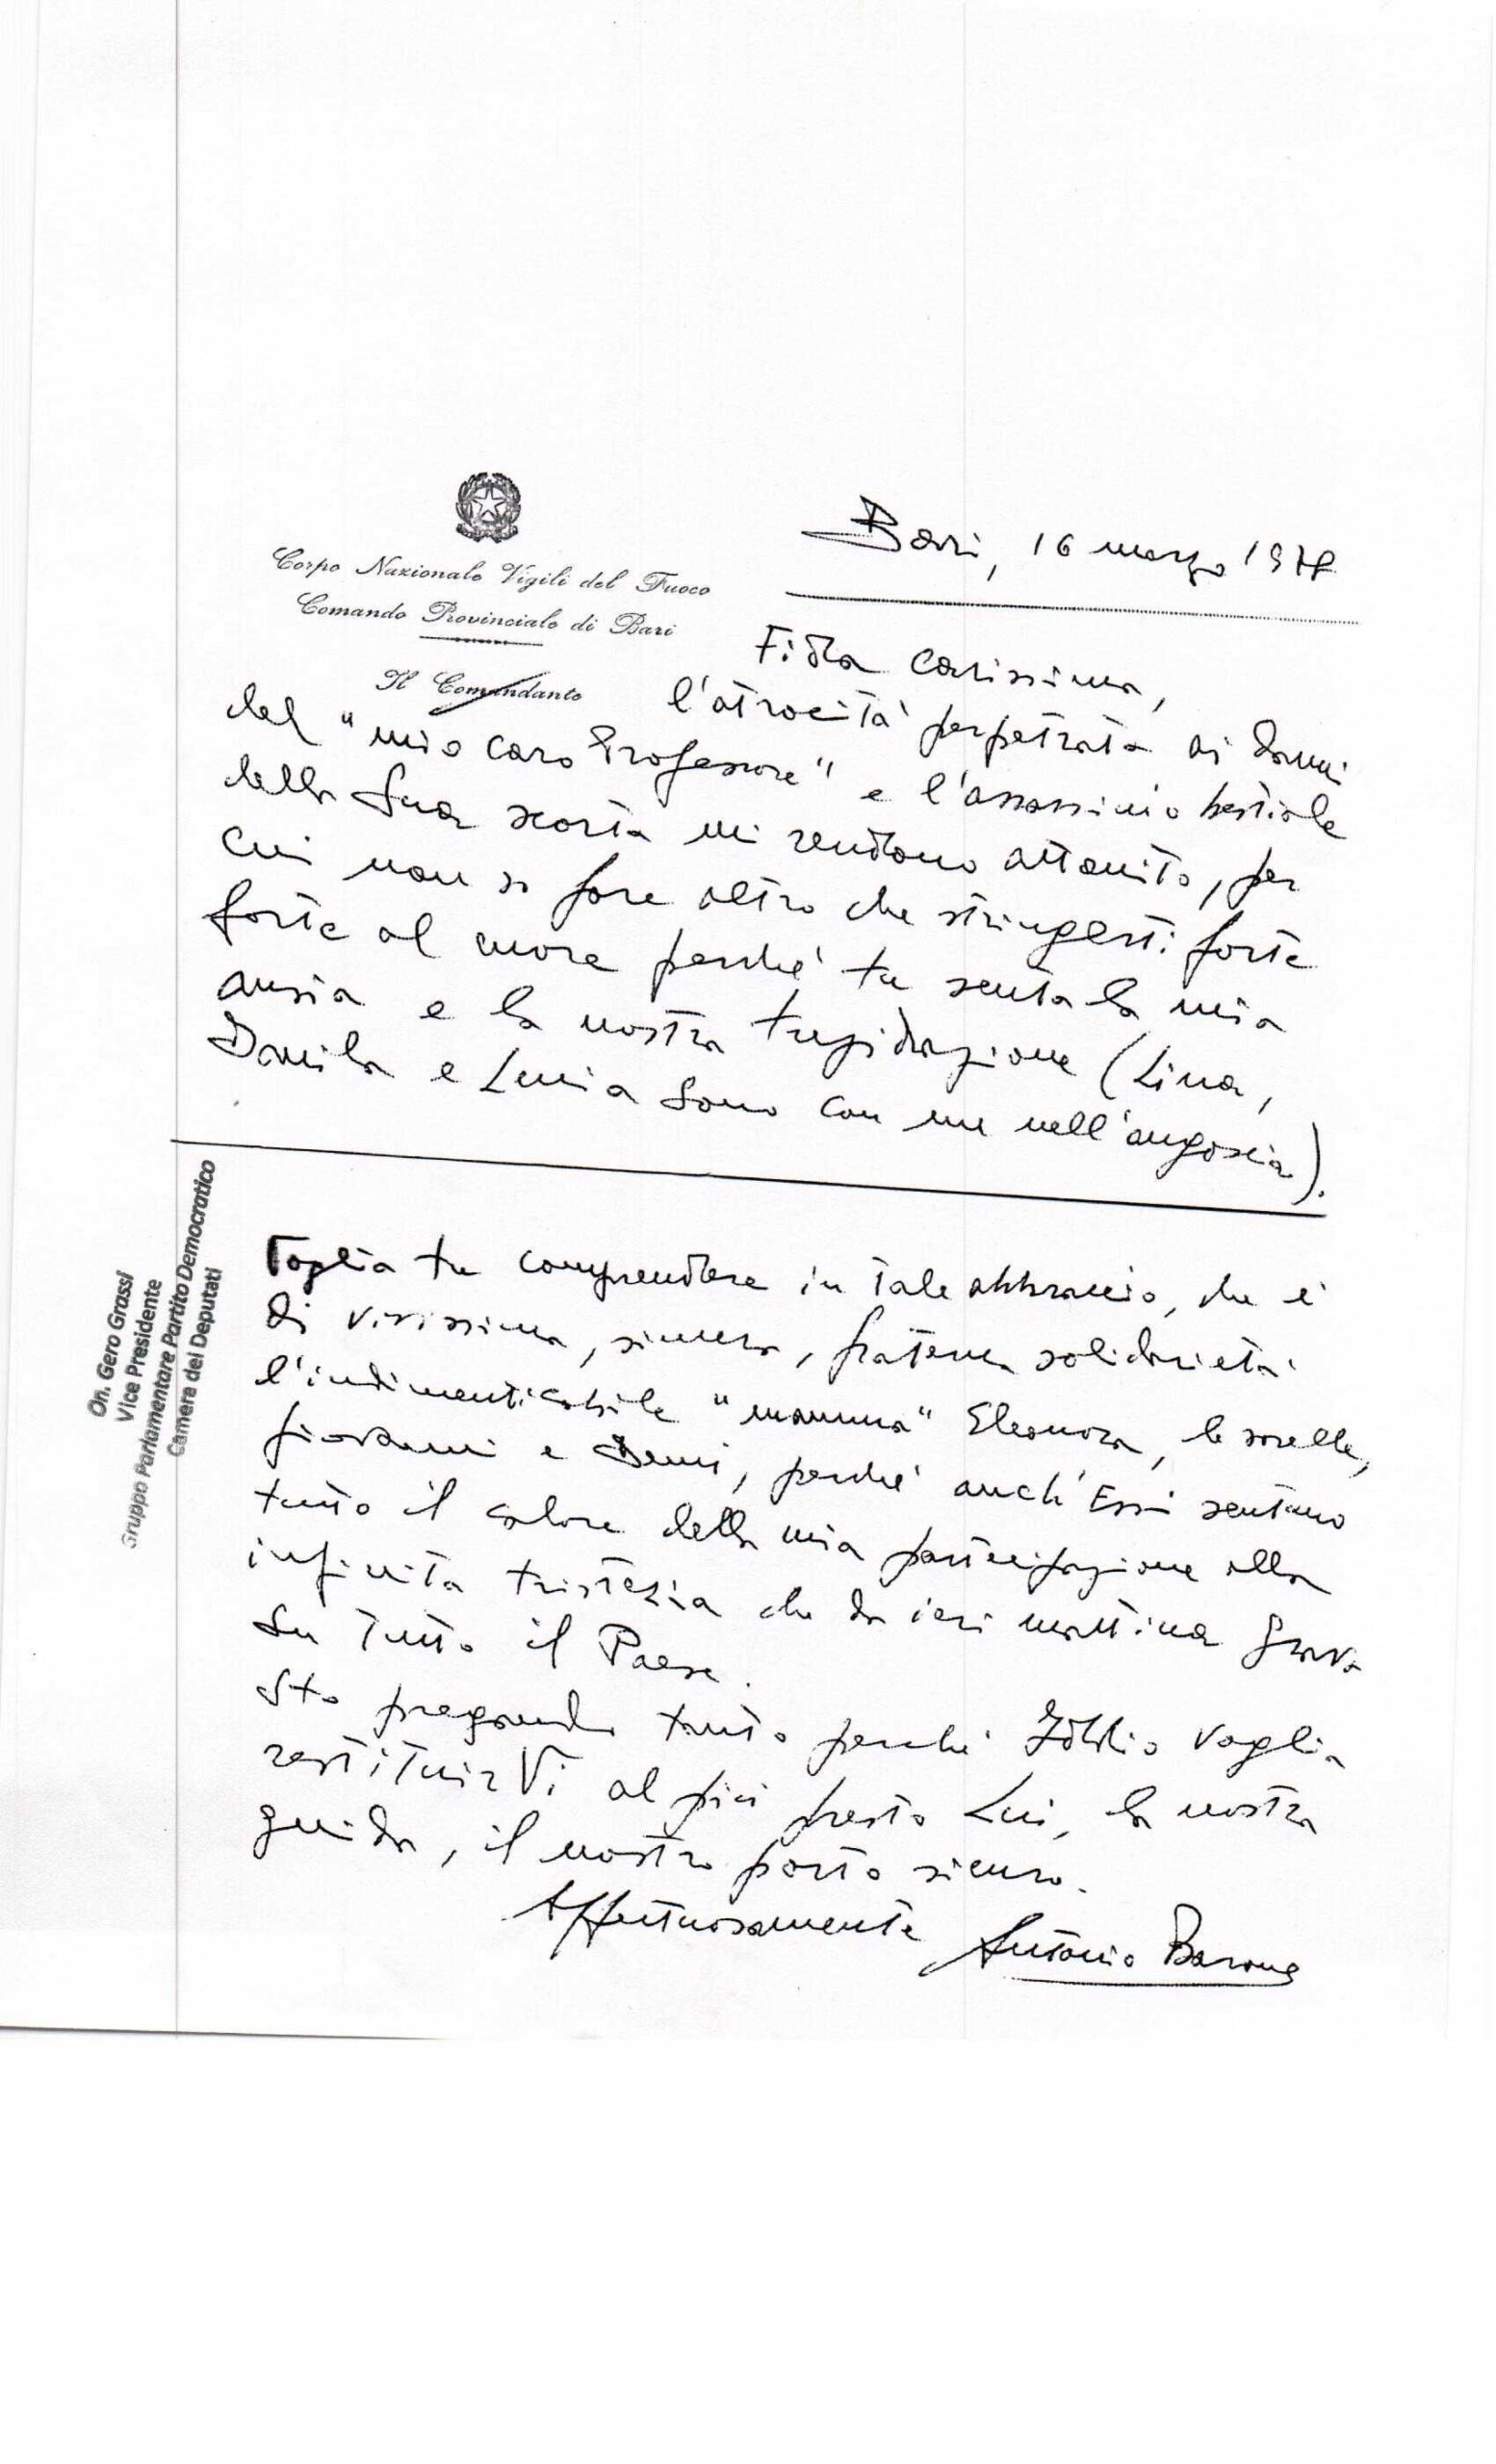 Corpo Nazionale Vigili del Fuoco
Comando Provinciale di Bari
Il Comandante
Bari, 16 marzo 1978
Fida carissima,
l'atrocità perpetrata ai danni
del "mio caro Professore" e l'assassinio bestiale
della Sua scorta mi rendono attonito, per
cui non so fare altro che stringerti forte
forte al cuore perché tu senta la mia
ansia e la nostra trepidazione (Lina,
Danila e Lucia sono con me nell'angoscia).
Voglia tu comprendere in tale abbraccio, che è
di vivissima, sincera, fraterna solidarietà
l'indimenticabile "mamma" Eleonora, le sorelle,
Giovanni e, perché anch'Essi sentano
tutto il calore della mia partecipazione alla
infinita tristezza che da ieri mattina grava
su tutto il Paese.
Sto pregando tanto perché Iddio voglia
restituirVi al più presto Lui, la nostra
guida, il nostro porto sicuro.
Affettuosamente Antonio Barone
On. Gero Grassi
Vice Presidente
Gruppo Parlamentare Partito Democratico
Camera dei Deputati